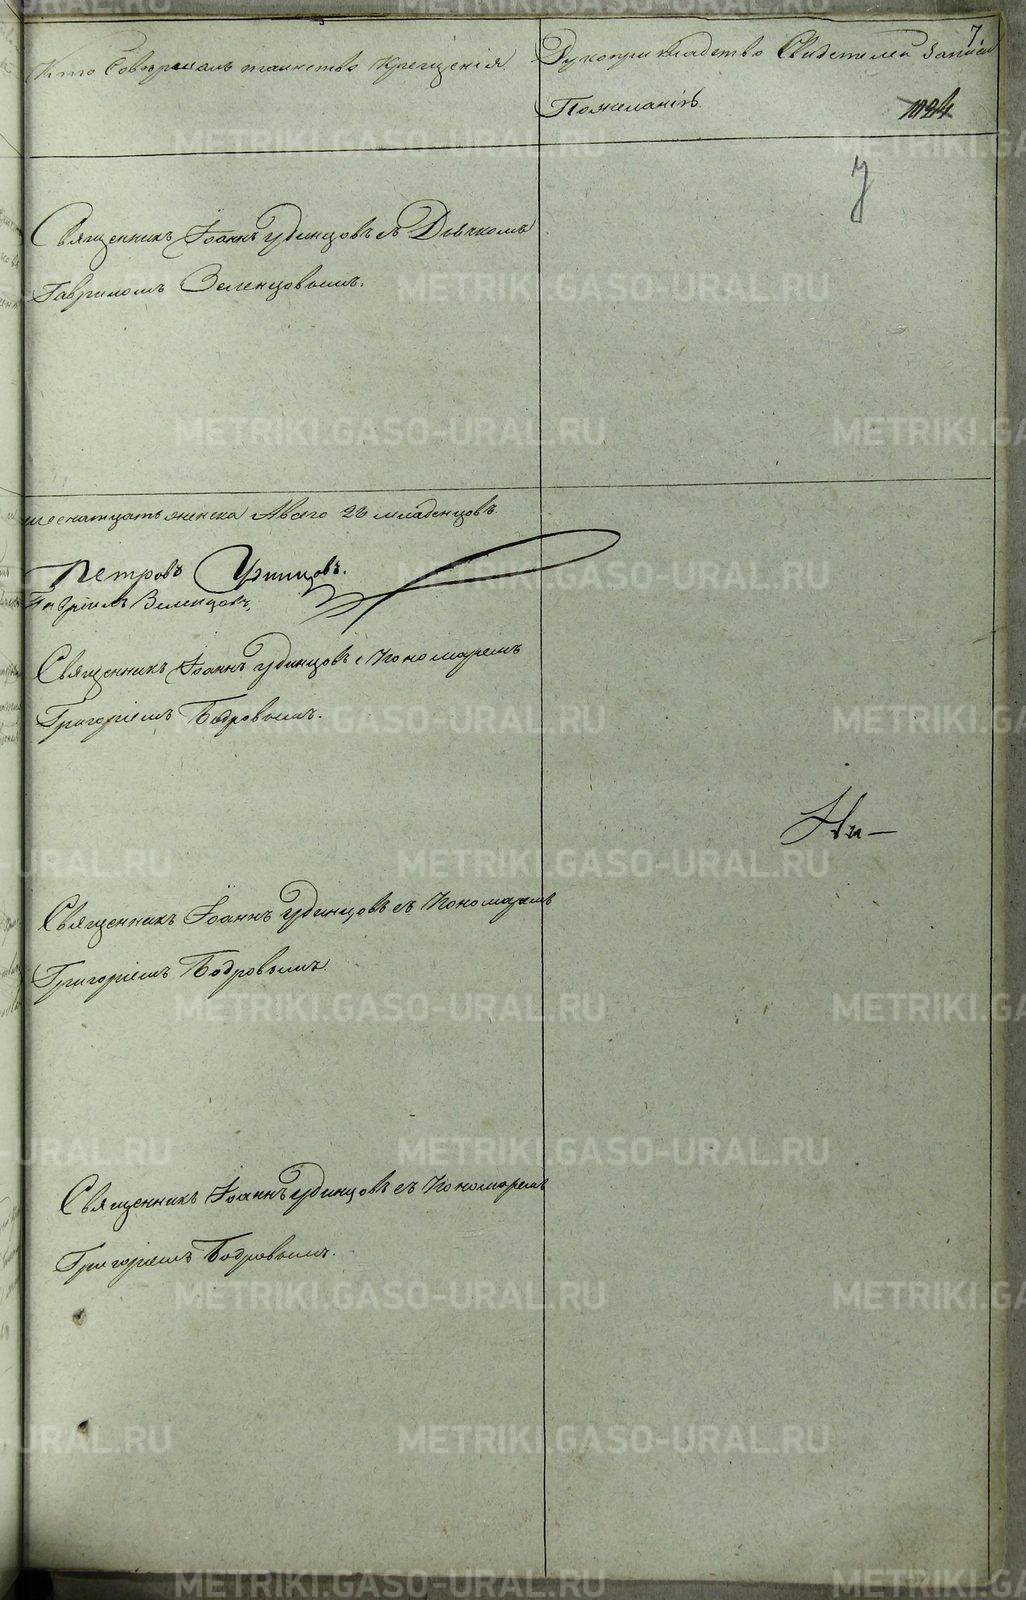 7
Кто Совершалъ таинство Крещенія
Рукоприкладство Свидетелей записи
Пожеланію
1024
7
Священникъ Іоаннъ Удинцовъ съ Дьячкомъ
Гавриломъ Зеленцовымъ.
женска А всего 26 младенцовъ
Петровъ Удинцовъ.
Гавріилъ Зеленцовъ,
Священникъ Іоаннъ Удинцовъ с Пономаремъ
Григоріемъ Бодровымъ.
Священникъ Іоаннъ Удинцовъ съ Пономаремъ
Григоріемъ Бодровымъ.
Священникъ Іоаннъ Удинцовъ съ Пономаремъ
Григоріемъ Бодровымъ.
METRIKI.GASO-URAL.RU